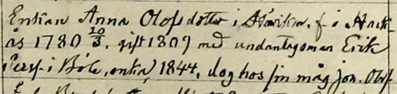 Enkan Anna Olofsdotter i f. i Hack-
ås 1780 20/3, gift 1809 med undantagsman Erik
Persf. i Bole, enka 1844, dog hos sin måg Jon. Olof